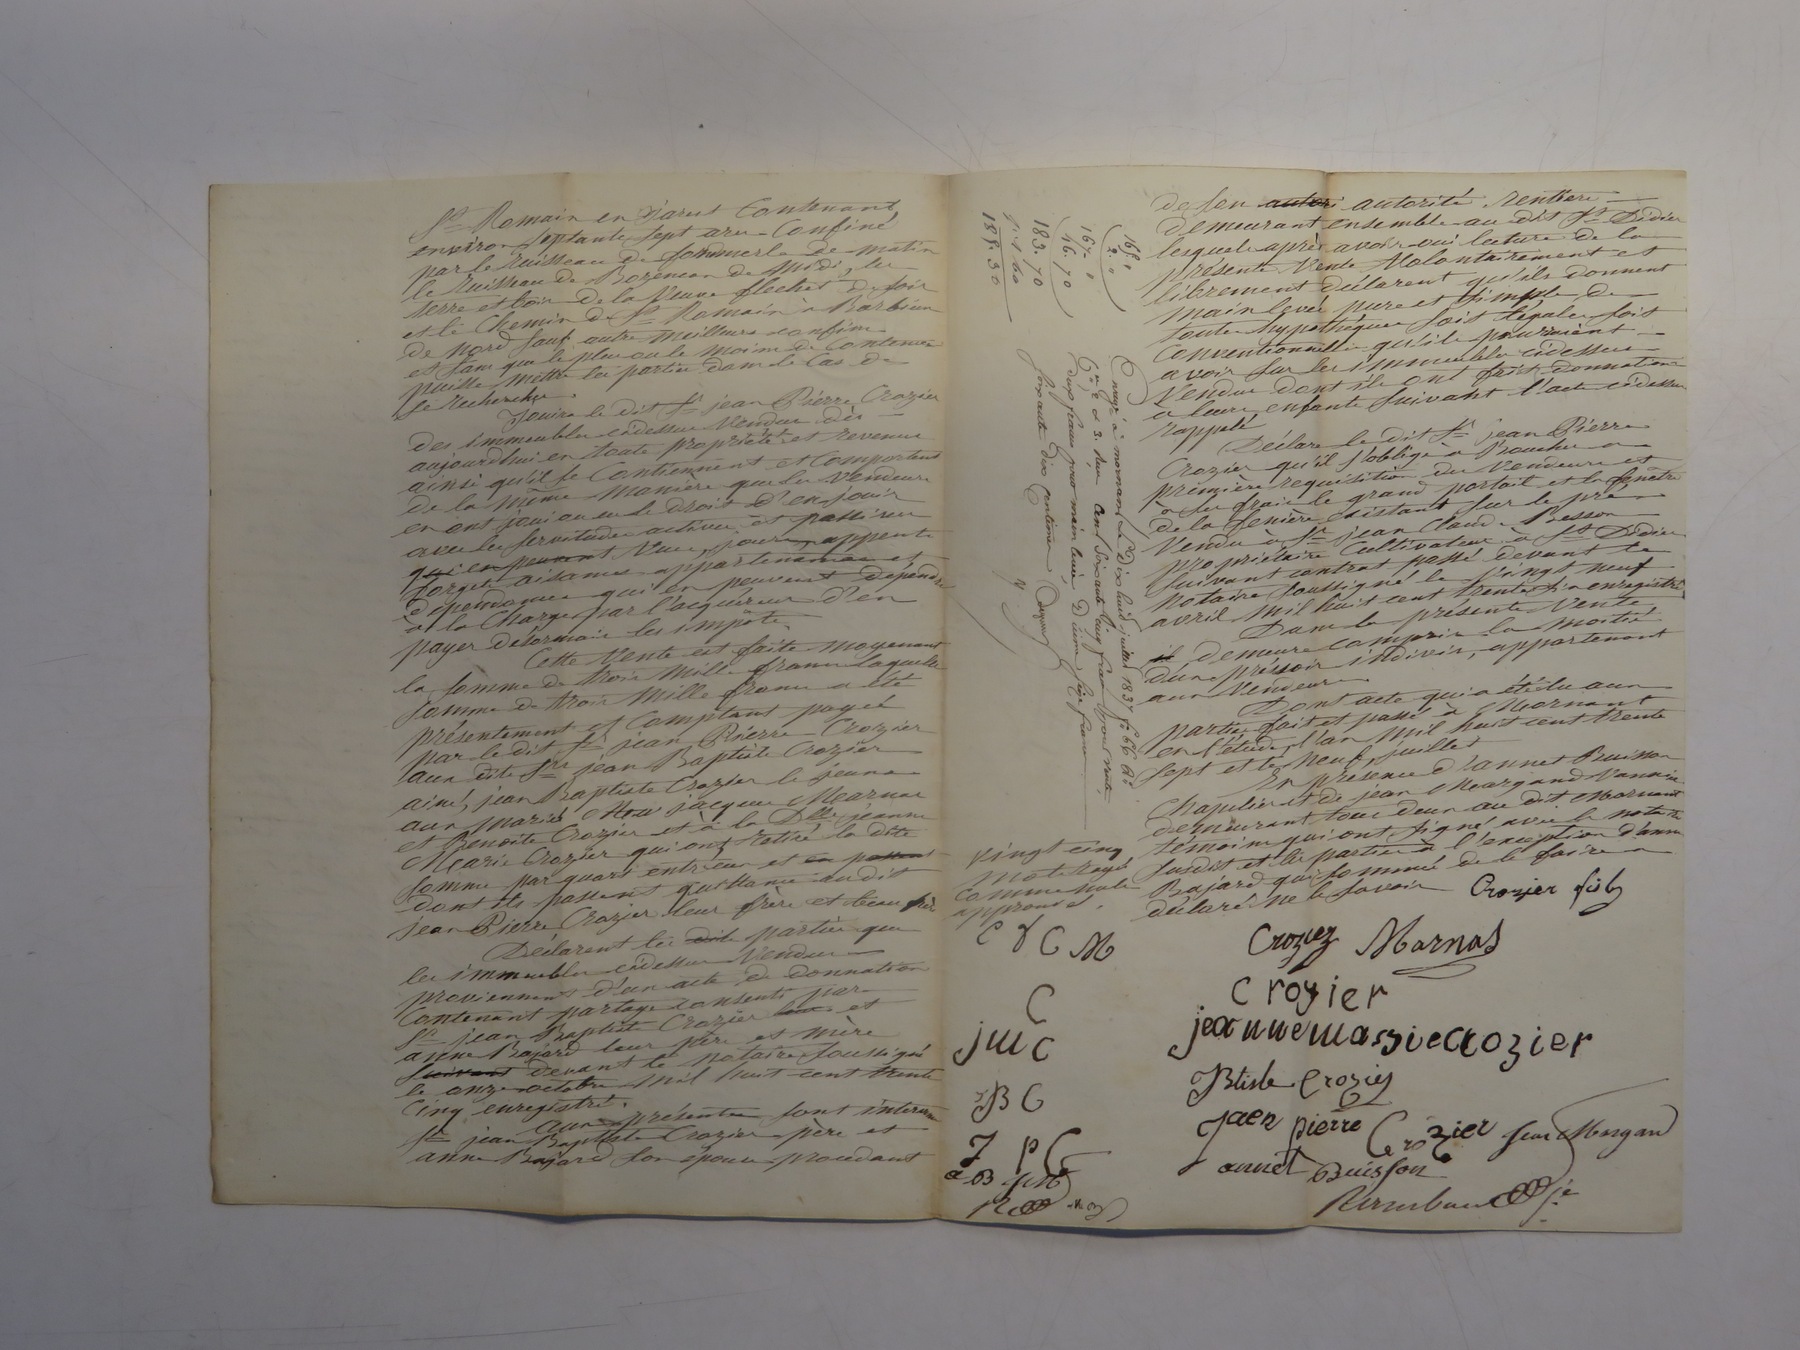 St Romain en Jarest Contenant
environ septante sept ares Confiné
par le ruisseau de sommerle de matin
le ruisseau de Bozençon de midi, les
terre et bois de la Veuve flechet de soir
et le Chemin de St Romain à Barbieux
de nord sauf autre meilleurs confins
et sans que le plus ou le moins de Contenue
puisse mettre les parties dans le Cas de
se rechercher.
Jouira le dit Sr jean Pierre Crozier
des immeubles cidessus Vendus dès
aujourdhui en toute propriété et revenus
ainsi qu'ils se Contiennent et Comportent
de la même manière que les Vendeurs
en ont joui ou eu le droit d'en jouir
avec les servitudes actives et passives
qui en peuvent Vues, jours, appents
forgets aisances appartenances et
dépendances qui en peuvent dépendre
à la Charge par l'acquéreur d'en
payer désormais les impôts.
Cette Vente est faite moyenant
la somme de trois mille francs laquelle
somme de trois mille francs a été
présentement et Comptant payée
par le dit Sr jean Pierre Crozier
aux dits Srs jean Baptiste Crozier
ainé, jean Baptiste Crozier le jeune
aux mariés jacques Marnas
et Benoite Crozier et à la Dlle jeanne
Marie Crozier qui ont retiré la dite
somme par quart entre eux et en passent
dont ils passent quittance audit
jean Pierre Crozier leur frère et beau frère
Déclarent les dits parties que
les immeubles cidessus Vendus
proviennent d'un acte de donnation
Contenant partage consenti par
Sr jean Baptiste Crozier et
anne Bajard leur père et mère
suivant devant le notaire soussigné
le onze octobre mil huit cent trente
Cinq enregistré.
aux présentes sont intervenus
Sr jean Baptiste Crozier père et
anne Bajard son épouse procédant
de son autori autorité rentière
demeurant ensemble au dit St Didier
lesquels après avoir oui lecture de la
présente Vente Volontairement et
librement déclarent qu'ils donnent
main levée pure et simple de
toutes hypothèques soit légales soit
Conventionnelles qu'ils pourraient
avoir sur les immeubles cidessus
Vendus dont ils ont fait donnation
à leurs enfants suivant l'acte cidessus
rappelé
Déclare le dit Sr jean Pierre
Crozier qu'il s'oblige à Boucher a
première requisition des Vendeurs et
à ses frais le grand portail et la fenêtre
de la fenière existant sur le pré
Vendu à Sr jean Claude Besson
propriétaire Cultivateur à St Didier
suivant contrat passé devant le
Notaire soussigné le Vingt neuf
avril mil huit cent trente six enregistré
Dans la présente Vente
il demeure compris la moitié
d'un pressoir indivis, appartenant
aux Vendeurs
Dont acte qui a été lu aux
parties fait et passé à Mornant
en l'étude, l'an mil huit cent trente
sept et le Neuf juillet
En présence d'annet Buisson
Chapelier et de jean Margand Vannier
demeurant tous deux au dit Mornant
témoins qui ont signé avec le notaire
susdit et les parties à l'exception d'anne
Bajard qui sommée de le faire a
déclaré ne le savoir
Crozier fils
Crozier Marnas
Crozier
jeannemarsiecrozier
JBtiste Crozier
Jaen pierre Crozier jean Margand
annet Buisson
168."
2."
167. "
16. 70
183. 70
189. 30
Enregé à mornant le Dix huit juillet 1837 fo 66 Ro
Cen 2 et 3. reçu Cent soixante Cinq francs pour vente,
deux francs pour main levée Décime seize francs
soixante dix centimes
Vingt cinq
mots rayés
comme nuls
approuvés.
C M
C
jmC
JBC
J P C
a B